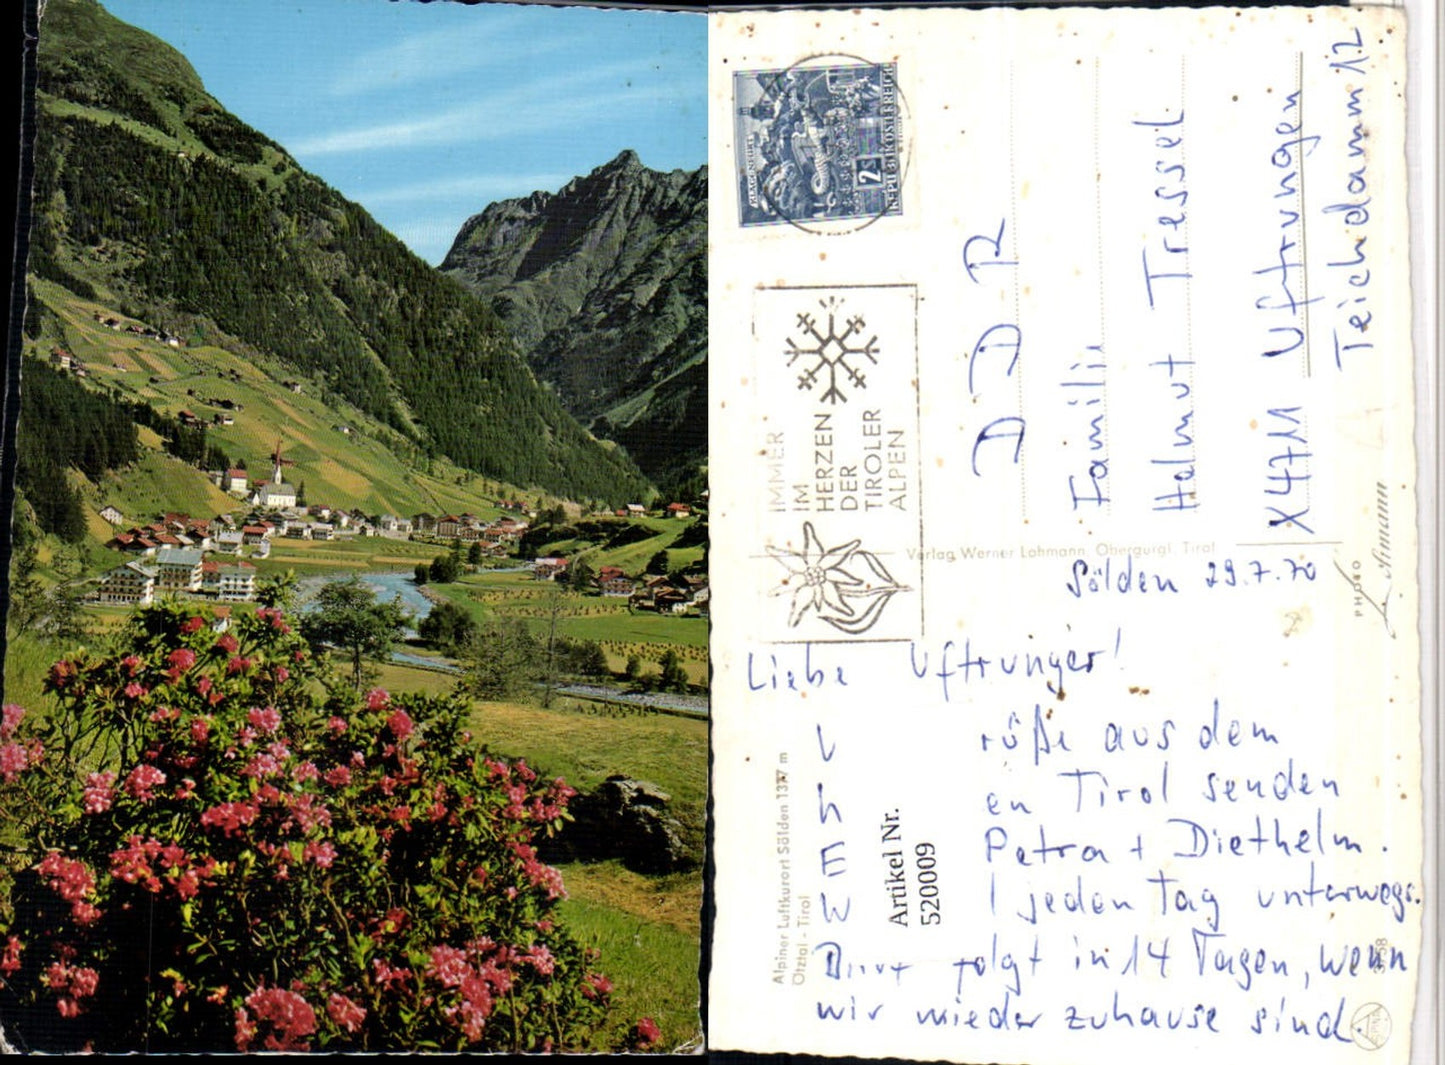 KLAGENFURT
2S
REPUBLIK ÖSTERREICH
IMMER
IM
HERZEN
DER
TIROLER
ALPEN
DDR
Familie
Helmut Tressel
X4711 Uftrungen
Teichdamm 12
Verlag Werner Lohmann, Obergurgl, Tirol
PHOTO
Sölden 29.7.70
Liebe Uftrunger!
rüße aus dem
en Tirol senden
Petra + Diethelm.
jeden Tag unterwegs.
folgt in 14 Tagen, wenn
wir wieder zuhause sind.
Alpiner Luftkurort Sölden 1377 m
Ötztal - Tirol
Artikel Nr.
520009